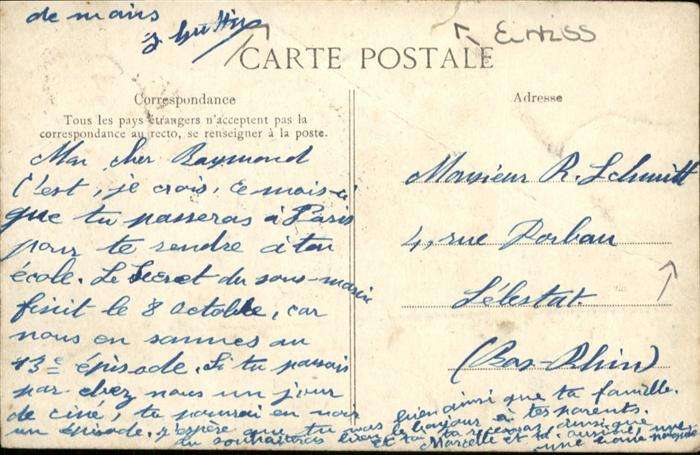 de mains
CARTE POSTALE
Correspondance
Tous les pays étrangers n'acceptent pas la
correspondance au recto, se renseigner à la poste.
Mon cher Raymond
C'est, je crois, ce mois-ci
que tu passeras à Paris
pour te rendre à ton
école. Le Secret du sous-marin
finit le 8 octobre, car
nous en sommes au
13e épisode. Si tu passais
par chez nous un jour
de ciné, tu pourrai en voir
un épisode. J'espère que tu vas bien ainsi que ta famille.
du souhaiteras bien le bonjour à tes parents.
Marcelle et
une bonne
Adresse
Monsieur R. Schmitt
4, rue
Sélestat
(Bas-Rhin)